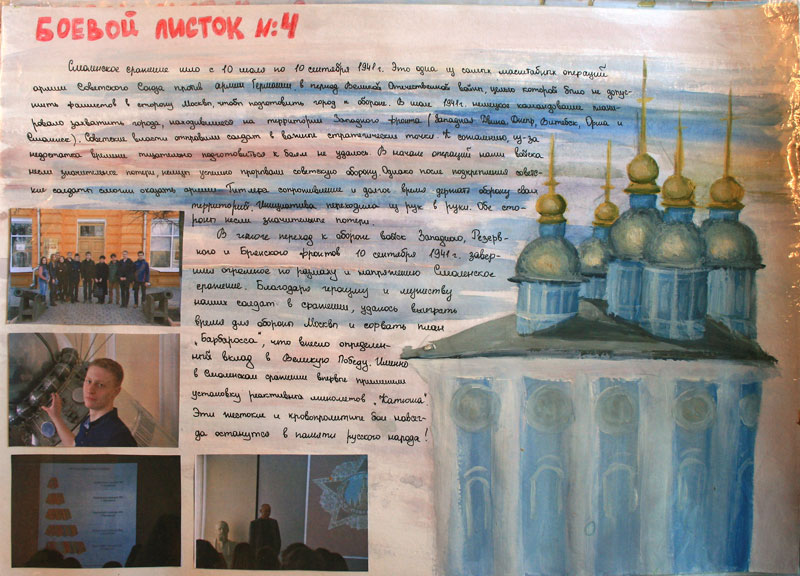 БОЕВОЙ ЛИСТОК №4
Смоленское сражение шло с 10 июля по 10 сентября 1941 г. Это одна из самых масштабных операций
армии Советского Союза против армии Германии в период Великой Отечественной войны, целью которой было не допус-
тить фашистов в сторону Москвы, чтобы подготовить город к обороне. В июле 1941г. немецкое командование плани-
ровало захватить города, находившиеся на территории Западного фронта (Западная Двина, Днепр, Витебск, Орша и
Смоленск). Советские власти отправили солдат в важные стратегические точки. К сожалению, из-за
недостатка времени тщательно подготовиться к боям не удалось. В начале операций наши войска
несли значительные потери, немцы успешно прорывали советскую оборону. Однако после подкрепления советс-
кие солдаты смогли оказать армии Гитлера сопротивление и долгое время держать оборону своих
территорий. Инициатива переходила из рук в руки. Обе сто-
роны несли значительные потери.
В итоге переход к обороне войск Западного, Резерв-
ного и Брянского фронтов 10 сентября 1941 г. завер-
шил огромное по размаху и напряжению Смоленское
сражение. Благодаря героизму и мужеству
наших солдат в сражении, удалось выиграть
время для обороны Москвы и сорвать план
„Барбаросса", что внесло определен-
ный вклад в Великую Победу. Именно
в Смоленском сражении впервые применили
установку реактивных миномётов „Катюша"
Эти жестокие и кровопролитные бои навсег-
да останутся в памяти русского народа!